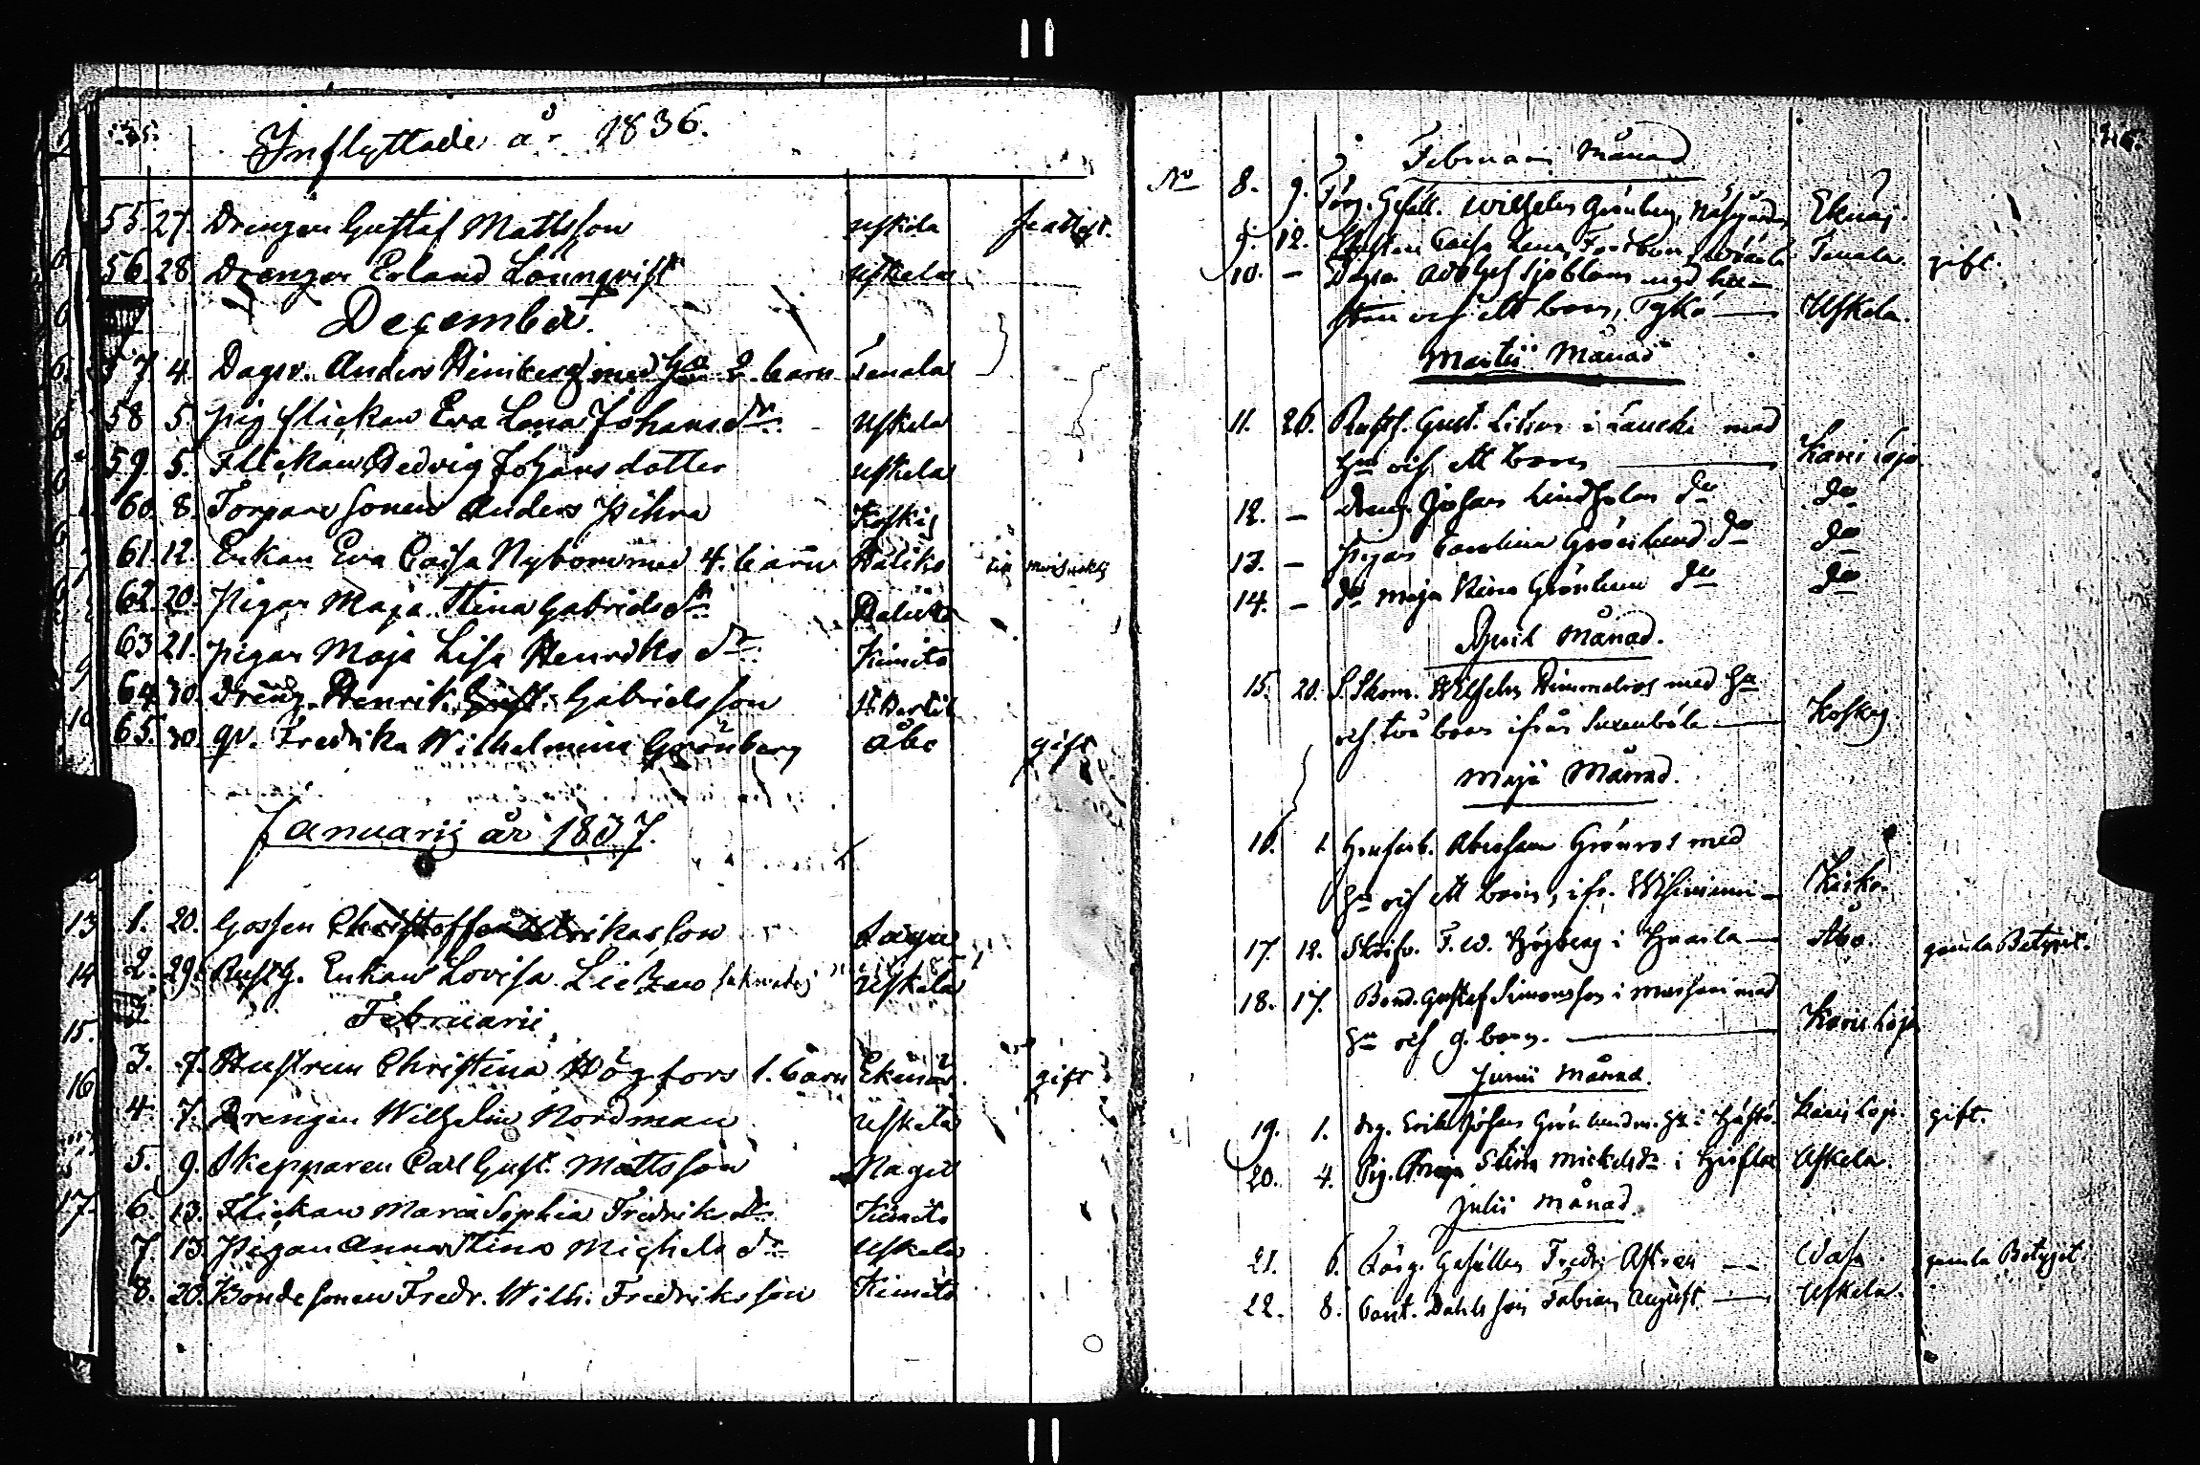 Inflyttade år 1836.
55 27. Drengen Gustaf Mattsson Uskela
56 28 Drengen Erland Lönnqvist Uskela
December.
57 4 Dagsv. Anders Heinberg med Hu 2 barn Tenala
58 5. pig flickan Eva Lena Johansdr Uskela
59. 5. Flickan Hedvig Johansdotter Uskela
60. 8. Torpare Sonen Anders Pihra Koskis
61. 12. Enkan Eva Caisa Nybom med 4. barn Haliko
62. 20. Pigan Maja Stina Gabrielsdr Haliko
63 21. pigan Maja Lisa Henriksdr Kimito
64. 30. Dreng. Henrik Gust. Gabrielsson St Bertil
65. 30. qv. Fredrika Wilhelmina Grönberg Åbo gift
Januarij år 1837.
1. 20. Gossen Christoffer Eriksson Sagu
2. 29. Rusth. Enkan Lovisa Lietzen Uskela
Februarii
3. 7. Hustrun Christina Högfors 1. barn Ekenäs. gift
4 7. Drengen Wilhelm Nordman Uskela
5. 9. Skepparen Carl Gust. Mattsson Nagu
6. 13. Flickan Maria Sophia Fredriksdr Kimito
7. 13. Pigan Anna Stina Michelsdr Uskela
8. 20. Bonde sonen Fredr. Wilh. Fredriksson Kimito
Februarii Månad
No 8. 9. Färg. Gesäll. Wilhelm Grönberg, Näsegården Ekenäs.
9. 12. Caisa Lena Tenala. gift.
10. – Dagsv. Adolph Sjöblom med hu-
strun och ett barn, Tykö — Uskela.
Martii Månad
11. 26. Rusth. Gust. Litzen i Laucka med
Hu och ett barn — Karis Lojo
12. – Dreng Johan Lindholm do do
13. – Pigan Carolina Grönlund do do
14. – do Maja Stina Grönlund do do
April Månad.
15. 20. S. Skom. Wilhelm med Hu
och två barn ifrån — Koskis
Maji Månad.
16. 1. Abraham Grönros med
Hu och ett barn, ifr. Kisko.
17. 12. Skrifv. F. W. Högberg i — Åbo. gamla Betyget.
18. 17. Bond. Gustaf Simonsson i med
Hu och 9. barn. — Karis Lojo
Junii Månad.
19. 1. Drg. Erik Johan Grönlund m. Hu i Karis Lojo. gift.
20. 4. Pig. Maja Stina Mickelsdr i Uskela.
Julii Månad.
21. 6. Färg. Gesällen Fredr. — Wasa gamla Betyget
22. 8. Cont. Dahls son Fabian August — Uskela.